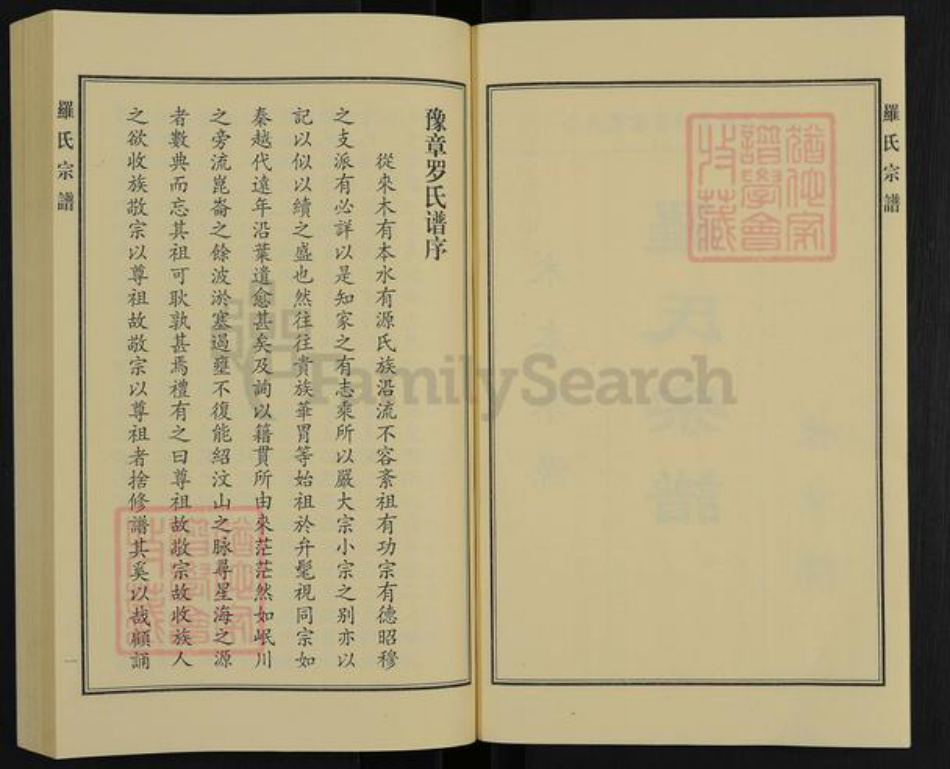 羅氏宗譜
豫章罗氏谱序
從來木有本水有源氏族沿流不容紊祖有功宗有德昭穆
之支派有必詳以是知家之有志乘所以嚴大宗小宗之别亦以
記以似以續之盛也然往往貴族華胄等始祖於弁髦視同宗如
秦越代遠年沿葉遺愈甚矣及詢以籍貫所由來茫茫然如岷川
之旁流崑崙之餘波淤塞過壅不復能紹汶山之脉尋星海之源
者數典而忘其祖可耿孰甚焉禮有之曰尊祖故敬宗故收族人
之欲收族敬宗以尊祖故敬宗以尊祖者捨修譜其奚以哉顧誦
一
羅氏宗譜
猶他家
譜學會
收藏
猶他家
譜學會
收藏
FamilySearch